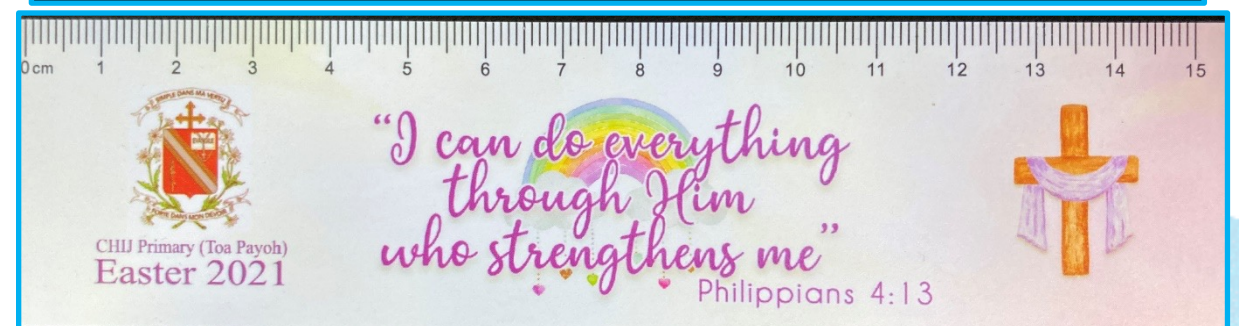 0 cm 1 2 3 4 5 6 7 8 9 10 11 12 13 14 15
SIMPLE DANS MA VERTU
FORTE DANS MON DEVOIR
CHIJ Primary (Toa Payoh)
Easter 2021
“I can do everything
through Him
who strengthens me”
Philippians 4:13